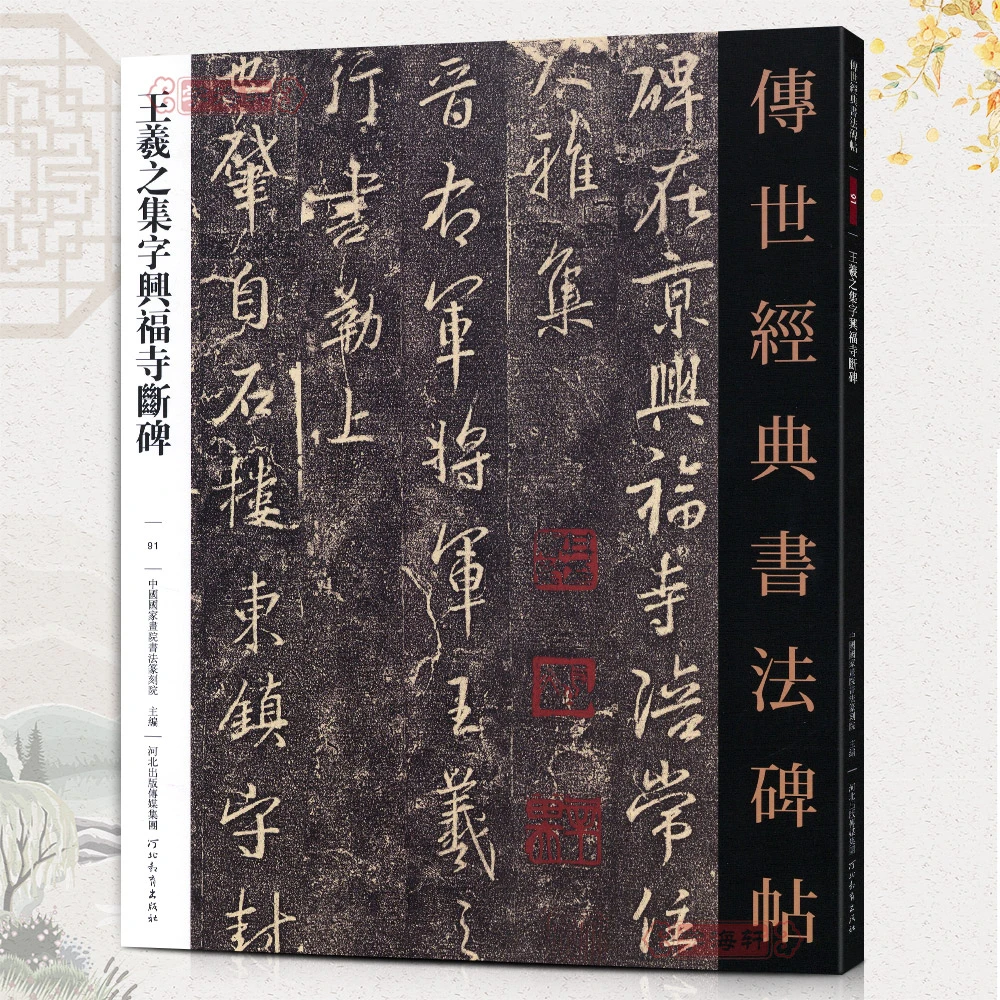 傳世經典書法碑帖
碑在京興福寺陪常住
大雅集
晉右軍將軍王羲之
行書勒上
也肇自石樓東鎮守封
王羲之集字興福寺斷碑
91
中國國家畫院書法篆刻院 主編
河北出版傳媒集團 河北教育出版社
傳世經典書法碑帖
91
王羲之集字興福寺斷碑
中國國家畫院書法篆刻院 主編
河北出版傳媒集團 河北教育出版社